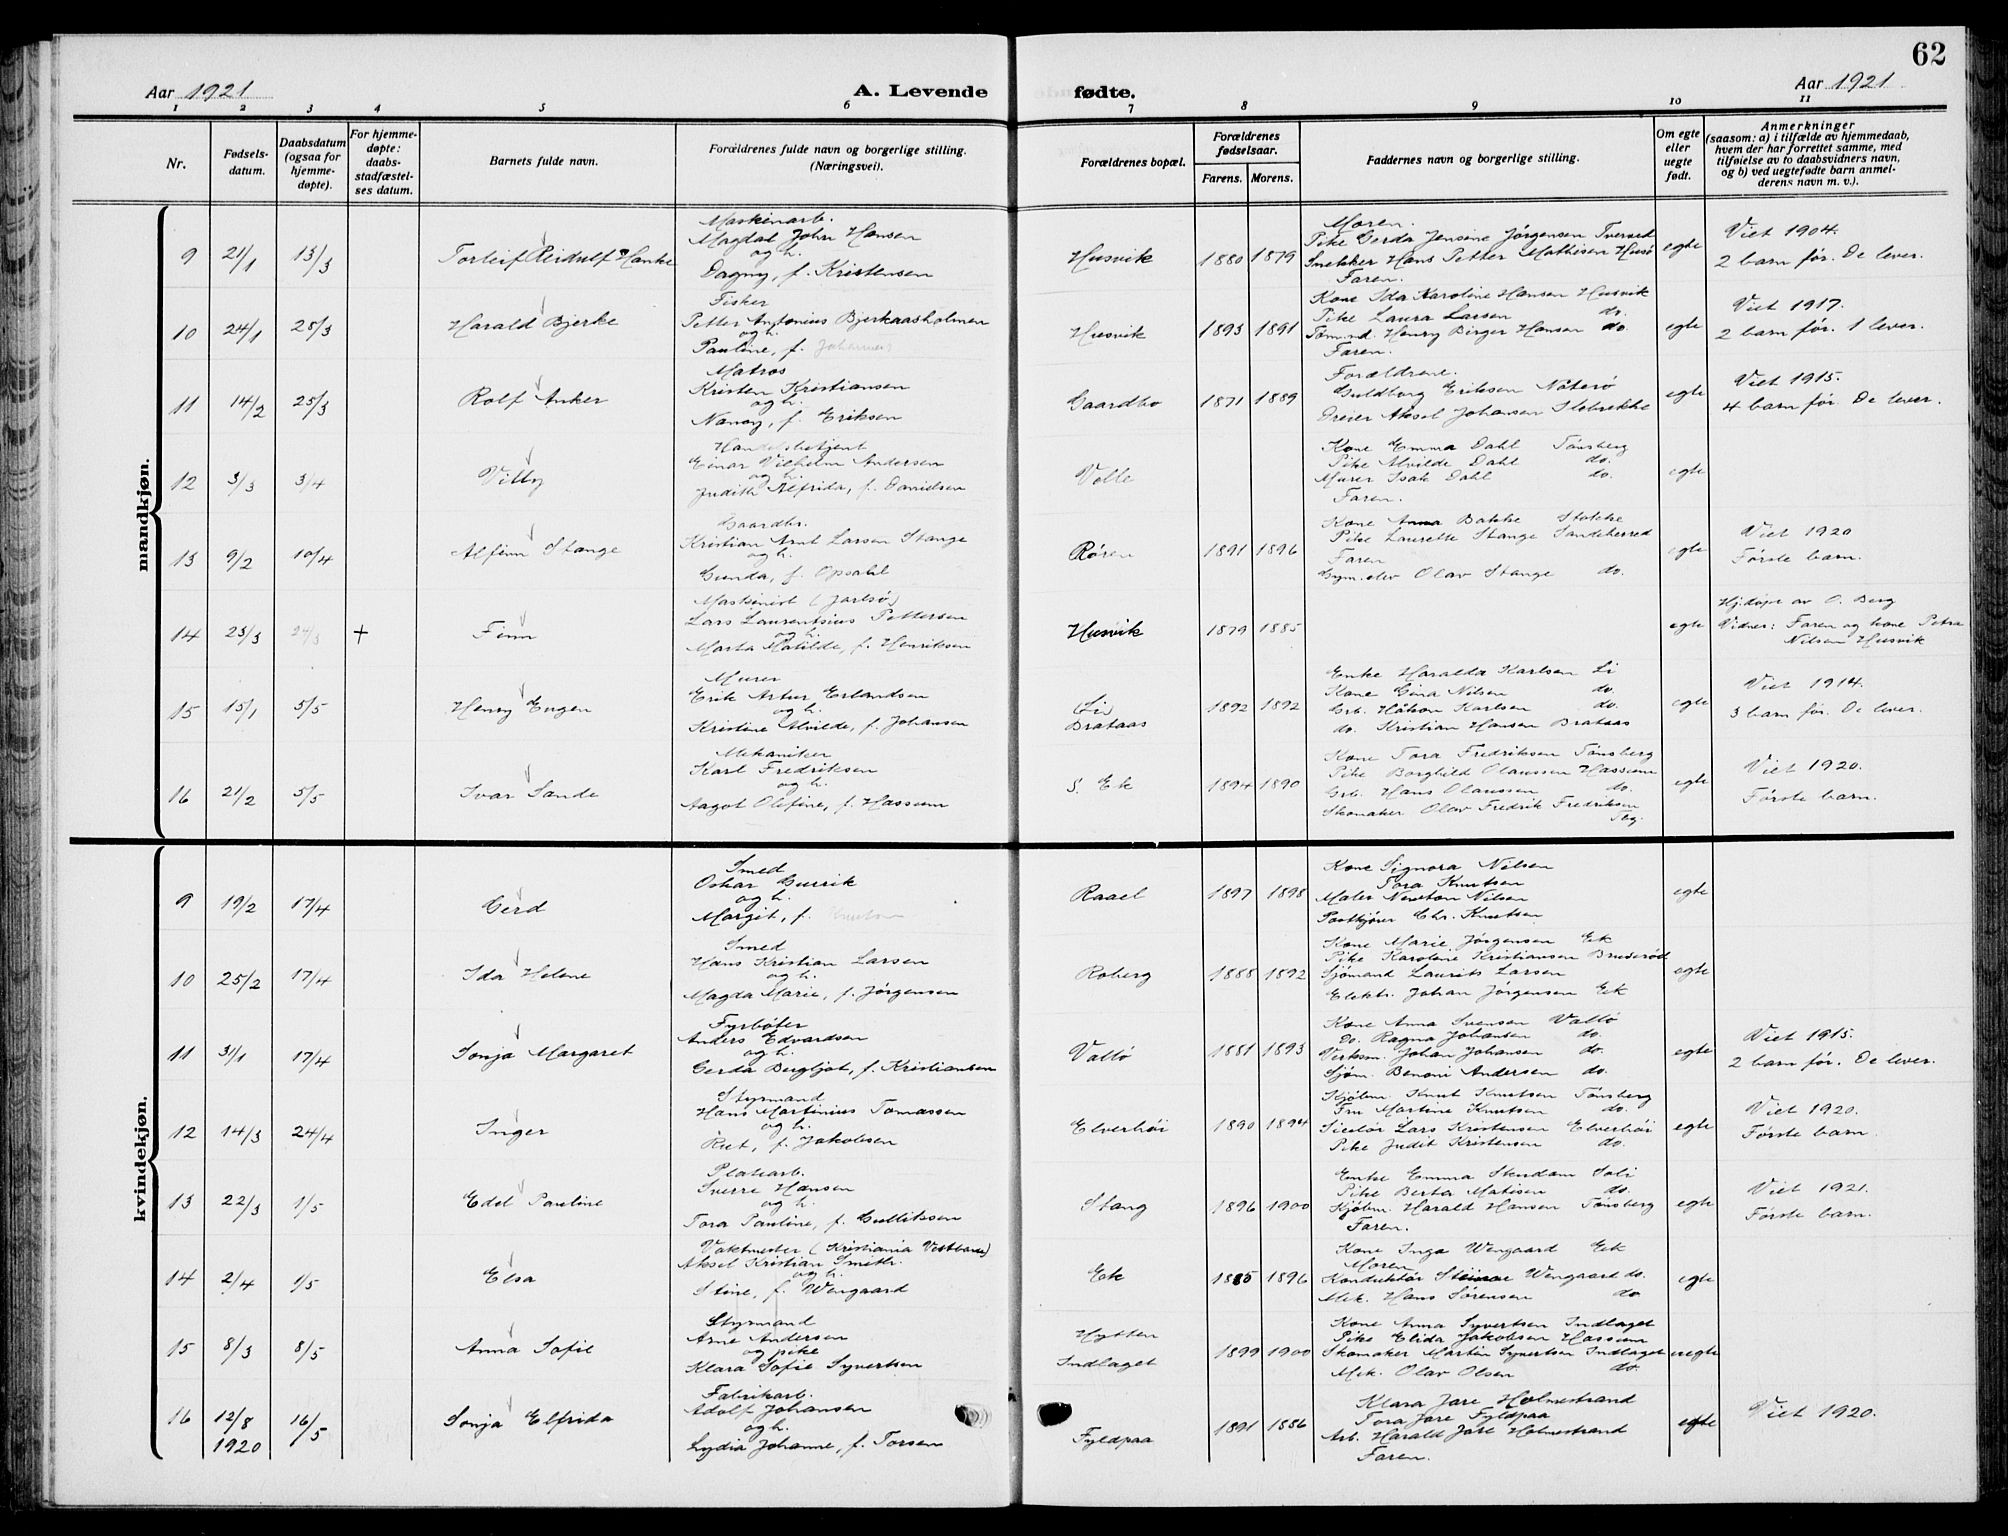 62
Aar 1921
A. Levende
fødte.
Aar 1921
1 2 3 4 5 6 7 8 9 10 11
Nr.
Fødsels-
datum.
Daabsdatum
(ogsaa for
hjemme-
døpte).
For hjemme-
døpte:
daabs-
stadfæstel-
ses datum.
Barnets fulde navn.
Forældrenes fulde navn og borgerlige stilling.
(Næringsvei).
Forældrenes bopæl.
Forældrenes
fødselsaar.
Farens. Morens.
Faddernes navn og borgerlige stilling.
Om egte
eller
uegte
født.
Anmerkninger
(saasom: a) i tilfælde av hjemmedaab,
hvem der har forrettet samme, med
tilføielse av to daabsvidners navn,
og b) ved uegtefødte barn anmel-
derens navn m. v.).
mandkjøn.
9 21/1 13/3 Torleif Reidulf Hanke
Maskinarb.
Magdal John Hansen
og h.
Dagny, f. Kristensen
Husvik 1880 1879
Moren.
Pike Gerda Jensine Jørgensen Tverved
Snekker Hans Petter Mathisen Husø
Faren.
egte
Viet 1904.
2 barn før. De lever.
10 24/1 25/3 Harald Bjerke
Fisker
Petter Antonius Bjerkaasholmen
og h.
Pauline, f. Johannes
Husvik 1893 1891
Kone Ida Karoline Hansen Husvik
Pike Laura Larsen do.
Tømmd. Henry Birger Hansen do.
Faren.
egte
Viet 1917.
2 barn før. 1 lever.
11 14/2 25/3 Rolf Anker
Matros
Kristen Kristiansen
og h.
Nancy, f. Eriksen
Gaardbo 1871 1889
Forældrene.
Guldborg Eriksen Nøterø
Dreier Aksel Johansen Slobrekke
egte
Viet 1915.
4 barn før. De lever.
12 3/3 3/4 Villy
Handelsbetjent
Einar Vilhelm Andersen
og h.
Judith Alfrida, f. Danielsen
Volle
Kone Emma Dahl Tønsberg
Pike Alvilde Dahl do.
Murer Isak Dahl do.
Faren.
egte
13 9/2 10/4 Alfinn Stange
Gaardbr.
Kristian Arnt Larsen Stange
og h.
Gunda, f. Opsahl
Røren 1891 1896
Kone Anna Bakke Stokke
Pike Laurette Stange Sandeherred
Faren
Gym.elev Olav Stange do.
egte
Viet 1920
Første barn.
14 23/3 24/3 + Finn
Maskinist (Jarlsø)
Lars Laurentsius Pettersen
og h.
Marta Matilde, f. Henriksen
Husvik 1879 1885
egte
Hj.døpt av O. Berg
Vidner: Faren og kone Petra
Nilsen Husvik
15 15/1 5/5 Henry Eugen
Murer
Erik Artur Erlandsen
og h.
Kristine Alvilde, f. Johansen
Li
Brataas
1892 1892
Enke Haralda Karlsen Li
Kone Gina Nilsen do.
Grb. Håkon Karlsen do.
do. Kristian Hansen Brataas
egte
Viet 1914.
3 barn før. De lever.
16 21/2 5/5 Ivar Sande
Mekaniker
Karl Fredriksen
og h.
Aagot Olefine, f. Hassum
S. Ek 1894 1890
Kone Tora Fredriksen Tønsberg
Pike Borghild Olaussen Hassum
Grb. Hans Olaussen do.
Skomaker Olav Fredrik Fredriksen
Tbg.
egte
Viet 1920.
Første barn.
kvindekjøn.
9 19/2 17/4 Gerd
Smed
Oskar Gurrik
og h.
Margit, f. Knutsen
Raael 1897 1898
Kone Signora Nilsen
Tora Knutsen
Maler Newton Nilsen
Postkjører Chr. Knutsen
egte
10 25/2 17/4 Ida Helene
Smed
Hans Kristian Larsen
og h.
Magda Marie, f. Jørgensen
Roberg 1888 1892
Kone Marie Jørgensen Ek
Pike Karoline Kristiansen Bruserød
Sjømand Laurits Larsen
Elektr. Johan Jørgensen Ek
egte
11 31/1 17/4 Sonja Margaret
Fyrbøter
Anders Edvardsen
og h.
Gerda Bergljot, f. Kristiansen
Vallø 1881 1893
Kone Anna Svensen Vallø
Do. Ragna Johansen do.
Verksm. Johan Johansen do.
Sjøm. Benoni Andersen do.
egte
Viet 1915.
2 barn før. De lever.
12 14/3 24/4 Inger
Styrmand
Hans Martinius Tomassen
og h.
Rut, f. Jakobsen
Elverhöi 1890 1894
Kjøbm. Knut Knutsen Tønsberg
Fru Martine Knutsen do.
Sleetör Lars Kristensen Elverhöi
Pike Judit Kristensen do.
egte
Viet 1920.
Første barn.
13 22/3 1/5 Edel Pauline
Platearb.
Sverre Hansen
og h.
Tora Pauline, f. Gulliksen
Stang 1896 1900
Enke Emma Stendam Soli
Pike Berta Matisen do.
Kjøbm. Harald Hansen Tønsberg
Faren.
egte
Viet 1921.
Første barn.
14 2/4 1/5 Elsa
Vaktmester (Kristiania Vestbane)
Aksel Kristian Smith.
og h.
Stine, f. Wengaard
Ek 1885 1896
Kone Inga Wengaard Ek
Moren
Konduktör Steinar Wengaard do.
Mek. Hans Sørensen do.
egte
15 8/3 8/5 Anna Sofie
Styrmand
Arne Andersen
og pike
Klara Sofie Syvertsen
Hytten
Indlaget
1899 1900
Kone Anna Syvertsen Indlaget
Pike Elida Jakobsen Hassum
Skomaker Martin Syvertsen Indlaget
Mek. Olav Olsen do.
uegte
16 12/8 1920 16/5 Sonja Elfrida
Fabrikarb.
Adolf Johansen
og h.
Lydia Johanne, f. Torsen
Fyldpaa 1891 1886
Klara Jare Holmestrand
Tora Jare Fyldpaa
Arb. Harald Jare Holmestrand
Faren.
egte
Viet 1920.